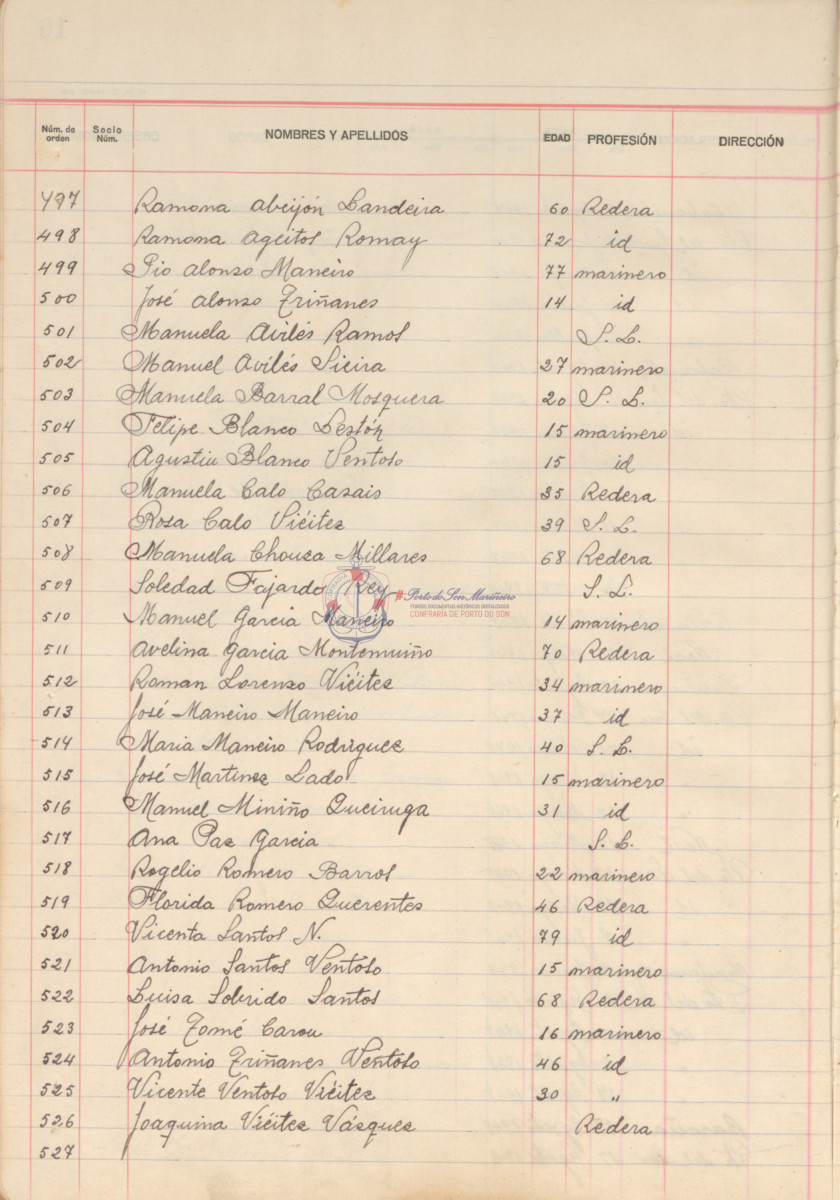 Núm. de orden Socio Núm. NOMBRES Y APELLIDOS EDAD PROFESIÓN DIRECCIÓN
497 Ramona Abeijón Landeira 60 Redera
498 Ramona Ageitos Romay 72 id
499 Pio Alonso Maneiro 77 marinero
500 José Alonso Triñanes 14 id
501 Manuela Avilés Ramos S. L.
502 Manuel Avilés Sieira 27 marinero
503 Manuela Barral Mosquera 20 S. L.
504 Felipe Blanco Lestón 15 marinero
505 Agustin Blanco Ventoso 15 id
506 Manuela Calo Casais 35 Redera
507 Rosa Calo Viéites 39 S. L.
508 Manuela Chouza Millares 68 Redera
509 Soledad Fajardo Rey S. L.
#Porto do Son Mariñeiro
FONDOS DOCUMENTAIS HISTÓRICOS DIXITALIZADOS
CONFRARÍA DE PORTO DO SON
510 Manuel Garcia Maneiro 14 marinero
511 Avelina Garcia Montemuiño 70 Redera
512 Roman Lorenzo Viéites 34 marinero
513 José Maneiro Maneiro 37 id
514 Maria Maneiro Rodriguez 40 S. L.
515 José Martinez Lado 15 marinero
516 Manuel Miniño Queiruga 31 id
517 Ana Paz Garcia S. L.
518 Rogelio Romero Barros 22 marinero
519 Florida Romero Querentes 46 Redera
520 Vicenta Santos N. 79 id
521 Antonio Santos Ventoso 15 marinero
522 Luisa Sobrido Santos 68 Redera
523 José Tomé Carou 16 marinero
524 Antonio Triñanes Ventoso 46 id
525 Vicente Ventoso Viéites 30 "
526 Joaquina Viéites Vásquez Redera
527